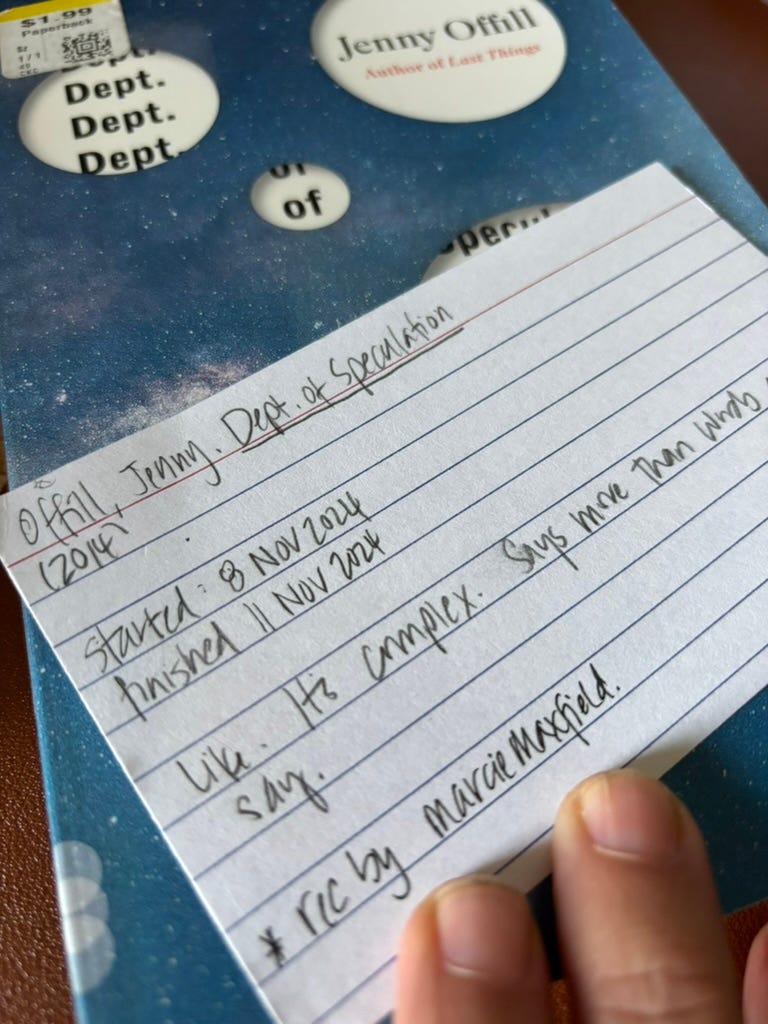 $1.99
Paperback
1/1
Dept.
Dept.
Dept.
Dept.
Jenny Offill
Author of Last Things
of
of
Specul
Offill, Jenny. Dept. of Speculation
(2014)
started: 8 Nov 2024
finished 11 Nov 2024
Like. It's complex. Says more than words
say.
* rec by Marcie Maxfield.